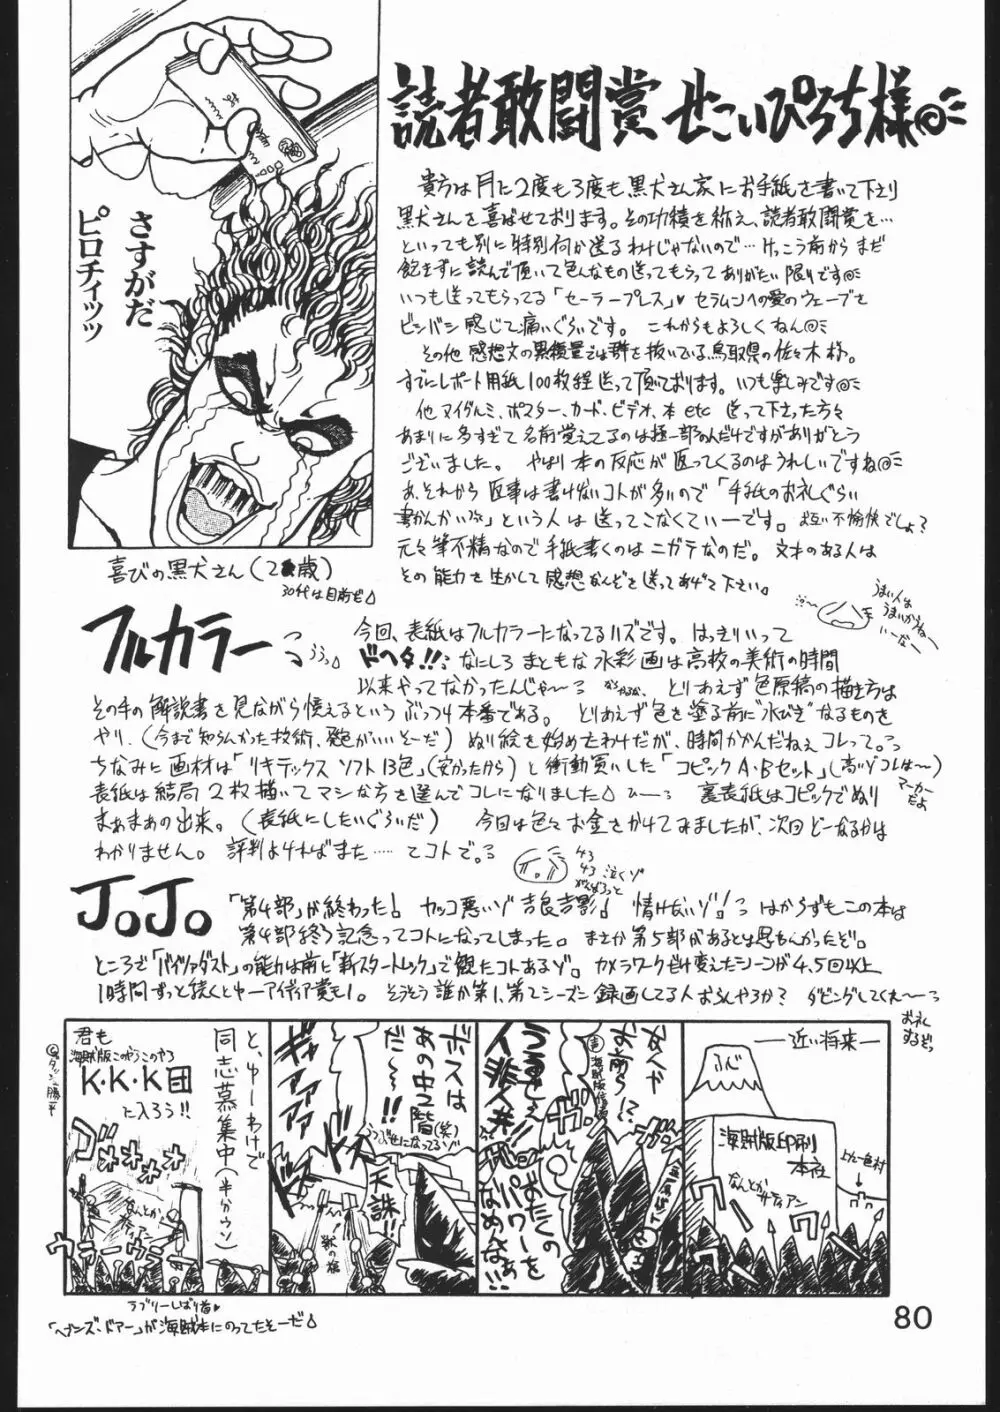 読者敢闘賞 せこいぴろち様
さすがだ
ピロチィッッ
貴方は月に2度も3度も黒犬さん家にお手紙を書いて下さり
黒犬さんを喜ばせております。その功績を称え、読者敢闘賞を…
といっても別に特別何か送るわけじゃないので…けっこう前からまだ
飽きずに読んで頂いて色んなもの送ってもらってありがたい限りです
いつも送ってもらってる「セーラープレス」♥セラムンへの愛のウェーブを
ビンバン感じて痛いぐらいです。これからもよろしくねん
その他 感想文の 群を抜いている鳥取県の佐々木様。
すでにレポート用紙100枚程送って頂いております。いつも楽しみです
他 ヌイグルミ、ポスター、カード、ビデオ、本etc 送って下さった方々
あまりに多すぎて名前覚えてるのは極一部なんだけですがありがとう
ございました。やはり本の反応が返ってくるのはうれしいですね
あ、それから返事は書けないコトが多いので「手紙のお礼ぐらい
書かんかい」という人は送ってこなくていーです。お互い不愉快でしょ?
元々筆不精なので手紙書くのはニガテなのだ。文才のある人は
その能力を生かして感想なんぞを送ってあげて下さい。
うまい人は
うまいからねー
いーなー
喜びの黒犬さん(2 歳)
30代は目前だ
フルカラー
今回、表紙はフルカラーになってるハズです。はっきりいって
ドヘタ!!なにしろまともな水彩画は高校の美術の時間
以来やってなかったんじゃ〜 とりあえず色原稿の描き方は
その手の解説書を見ながら憶えるというぶっつけ本番である。とりあえず色を塗る前に"水びき"なるものを
やり、(今まで知らんかった技術、発色がいいそーだ)ぬり絵を始めたわけだが、時間かかんだねぇコレって。
ちなみに画材は「リキテックス ソフト13色」(安かったから)と衝動買いした「コピックA・Bセット」(高いゾコレは〜)
マーカーだよ
表紙は結局2枚描いてマシな方を選んでコレになりました ひー 裏表紙はコピックでぬり
まあまあの出来。(表紙にしたいぐらいだ) 今回は色々お金をかけてみましたが、次回どーなるかは
わかりません。評判よければまた……てコトで。
JoJo
「第4部」が終わった! カッコ悪いゾ吉良吉影! 情けないゾ! はからずもこの本は
第4部終了記念ってコトになってしまった。まさか第5部があるとは思もんかったぞ。
ところで「バイツァダスト」の能力は前に「新スタートレック」で観たコトあるゾ。カメラワークだけ変えたシーンが4、5回以上
1時間ずっと続くと中一アイディア賞も1。そうそう誰か第1、第2シーズン録画してる人おらんやろか? ダビングしてくれ〜
お礼するぞっ
―近い将来―
ふじ
海賊版印刷
本社
なんとか
ザ・ティアン
友人や
お前ら!?
うるせぇ
人非人共
おたくの
パワーを
なめんなぁ!!
ボスは
あの中2階(笑)
だ〜!!
天誅!!
ギャァァァ
と、ゆーわけで
同志募集中(半分ウソ)
君も
海賊版このやろこのやろ
K・K・K団
に入ろう!!
ゴオォォォ
ラブリーしばり首♥
「ヘブンズ・ドアー」が海賊本にのってたそーだ
80